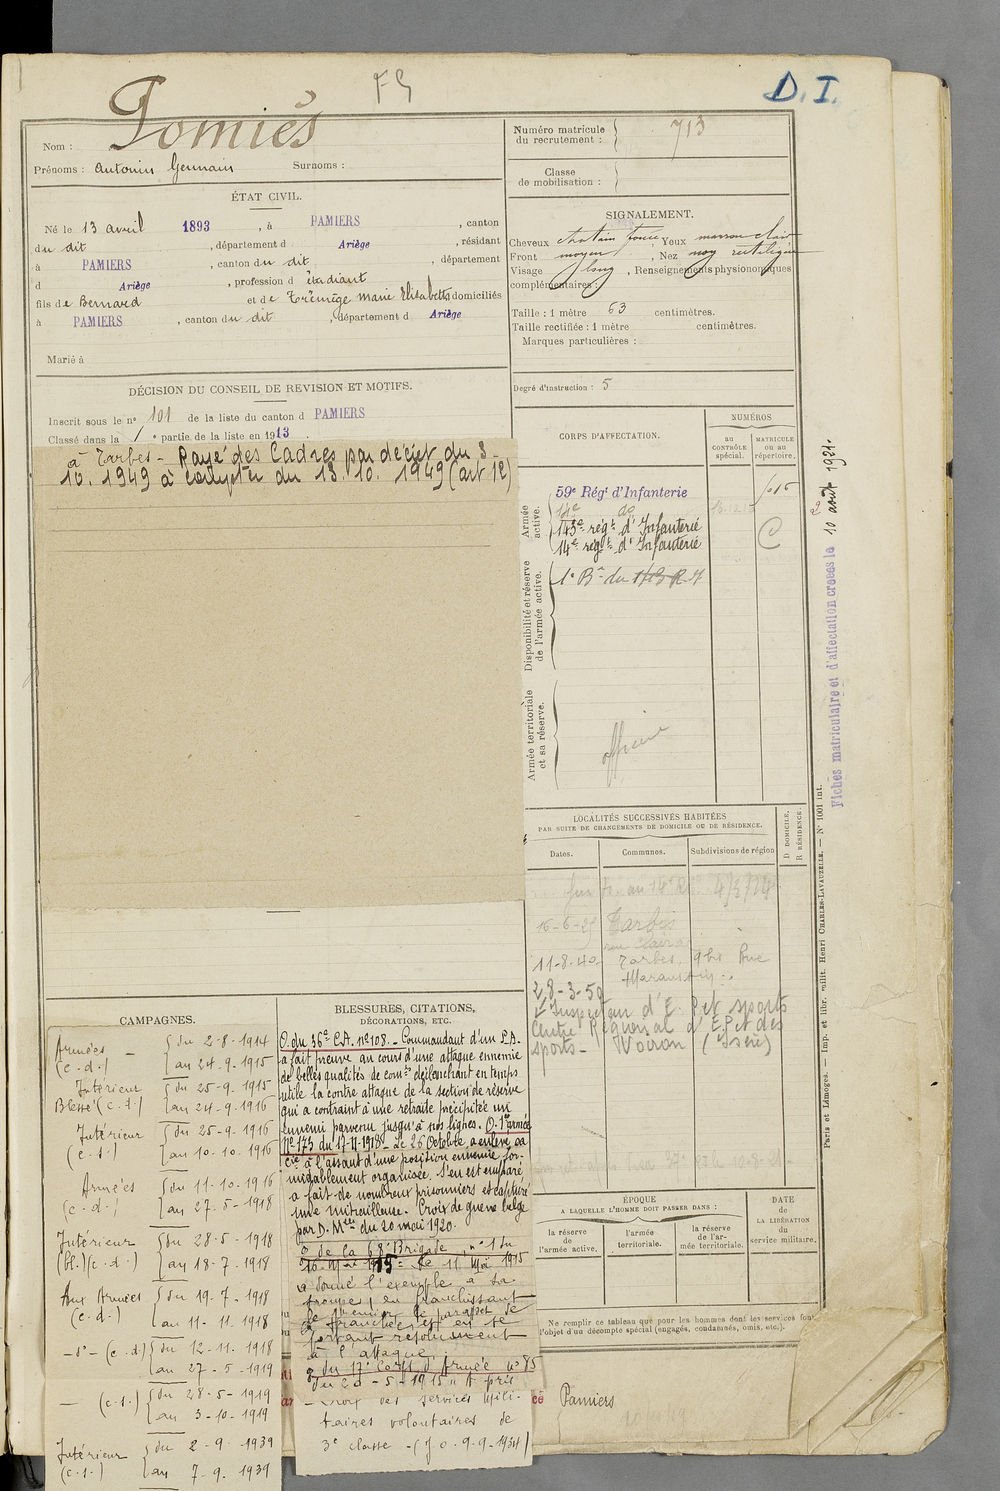 FG
D. I.
Nom : Pomiès
Prénoms : Antonin Germain Surnoms :
ÉTAT CIVIL.
Né le 13 avril 1893, à PAMIERS, canton
du dit, département d Ariège, résidant
à PAMIERS, canton du dit, département
d Ariège, profession d étudiant
fils de Bernard et de Trémège Marie Elisabeth domiciliés
à PAMIERS, canton du dit, département d Ariège
Marié à
DÉCISION DU CONSEIL DE REVISION ET MOTIFS.
Inscrit sous le nº 101 de la liste du canton d PAMIERS
Classé dans la 1e partie de la liste en 1913.
à Tarbes - Rayé des Cadres par décret du 3-
10. 1949 à compter du 13. 10. 1949 (art 12)
Numéro matricule du recrutement : 713
Classe de mobilisation :
SIGNALEMENT.
Cheveux chatain foncé, Yeux marron clair
Front moyen, Nez moy rectiligne
Visage long, Renseignements physionomiques
complémentaires :
Taille : 1 mètre 63 centimètres.
Taille rectifiée : 1 mètre centimètres.
Marques particulières :
Degré d'instruction : 5
CORPS D'AFFECTATION.
NUMÉROS
au CONTRÔLE spécial.
MATRICULE OU AU répertoire.
Armée active.
59e Régt d'Infanterie
14e do
143e régt d'Infanterie
14e régt d'Infanterie
Disponibilité et réserve de l'armée active.
Armée territoriale et sa réserve.
officier
Fiches matriculaire et d'affectation créées le 10 août 1921.
LOCALITÉS SUCCESSIVES HABITÉES
PAR SUITE DE CHANGEMENTS DE DOMICILE OU DE RÉSIDENCE.
Dates. Communes. Subdivisions de région
D DOMICILE. R RÉSIDENCE.
au 14e 4/3/14
16-6-25 Tarbes
11-8-40 Tarbes, 9 bis Rue
28-3-50
Inspecteur d'E. P et sports
Centre Régional d'E P et des
sports - Voiron (Isère)
Paris et Limoges. — Imp. et libr. milit. Henri CHARLES-LAVAUZELLE. — Nº 1001 int.
ÉPOQUE
A LAQUELLE L'HOMME DOIT PASSER DANS :
la réserve de l'armée active.
l'armée territoriale.
la réserve de l'armée territoriale.
DATE DE LA LIBÉRATION du service militaire.
Ne remplir ce tableau que pour les hommes dont les services font
l'objet d'un décompte spécial (engagés, condamnés, omis, etc.).
Pamiers
CAMPAGNES.
Armées (c.d.) du 2-8-1914
au 24-9-1915
Intérieur Blessé (c.d.) du 25-9-1915
au 24-9-1916
Intérieur (c.s.) du 25-9-1916
au 10-10-1916
Armées (c.d.) du 11-10-1916
au 27-5-1918
Intérieur (bl.)(c.d.) du 28-5-1918
au 18-7-1918
Aux Armées (c.d.) du 19-7-1918
au 11-11-1918
- d° - (c.d) du 12-11-1918
au 27-5-1919
— (c.s.) du 28-5-1919
au 3-10-1919
Intérieur (c.s.) du 2-9-1939
au 7-9-1939
BLESSURES, CITATIONS,
DÉCORATIONS, ETC.
O. du 36e C.A. nº 108. - Commandant d'un P.A.
a fait preuve au cours d'une attaque ennemie
de belles qualités de comt déclenchant en temps
utile la contre attaque de la section de réserve
qui a contraint à une retraite précipitée un
ennemi parvenu jusqu'à nos lignes. O. 1e armée
Nº 173 du 17-11-1918 - Le 26 Octobre, a enlevé sa
cie à l'assaut d'une position ennemie for-
midablement organisée. S'en est emparé
a fait de nombreux prisonniers et capturé
une mitrailleuse. Croix de guerre belge
par D. Melle du 20 mai 1920.
O de la 68e Brigade, nº 1 du
16 Mai 1915 - Le 11 Mai 1915
a donné l'exemple à sa
troupe, en franchissant
le premier le parapet de
la tranchée et en se
portant résolument
à l'attaque.
O du 17e Corps d'Armée nº 85
du 20-5-1915 " A pris
- Croix des services mili-
taires volontaires de
3e classe - (J O. 9-9-1934)